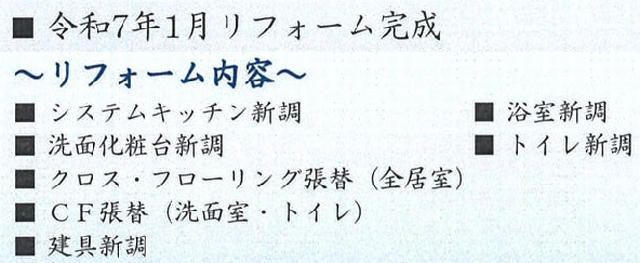 ■ 令和7年1月リフォーム完成
～リフォーム内容～
■ システムキッチン新調 ■ 浴室新調
■ 洗面化粧台新調 ■ トイレ新調
■ クロス・フローリング張替（全居室）
■ CF張替（洗面室・トイレ）
■ 建具新調